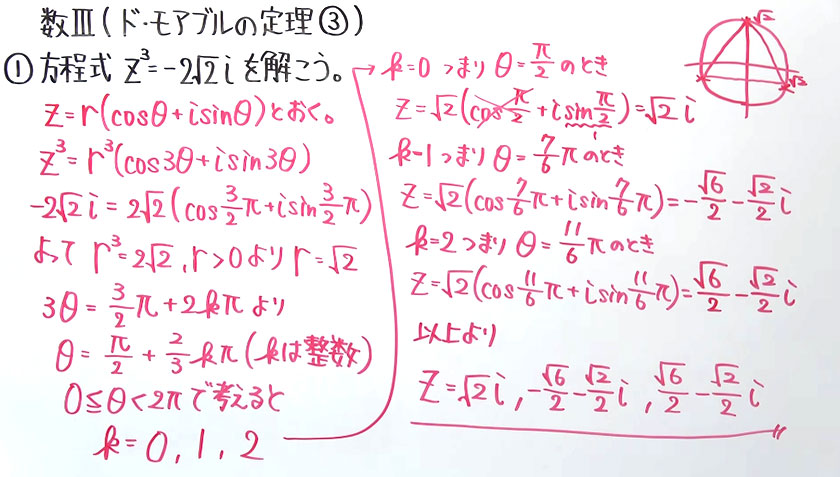 数Ⅲ(ド・モアブルの定理③)
①方程式 z³=-2√2iを解こう。
z=r(cosθ+isinθ)とおく。
z³=r³(cos3θ+isin3θ)
-2√2i=2√2(cos3/2π+isin3/2π)
よって r³=2√2,r>0よりr=√2
3θ=3/2π+2kπより
θ=π/2+2/3kπ(kは整数)
0≦θ<2πで考えると
k=0,1,2
k=0つまりθ=π/2のとき
z=√2(cosπ/2+isinπ/2)=√2i
1
k=1つまりθ=7/6πのとき
z=√2(cos7/6π+isin7/6π)=-√6/2-√2/2i
k=2つまりθ=11/6πのとき
z=√2(cos11/6π+isin11/6π)=√6/2-√2/2i
以上より
z=√2i,-√6/2-√2/2i,√6/2-√2/2i
√2
√2